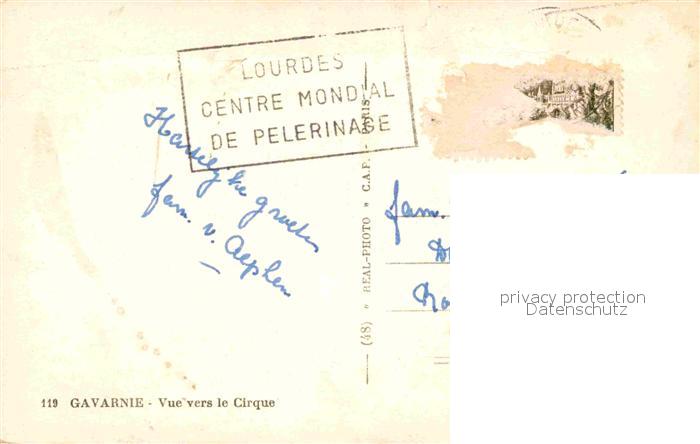 LOURDES
CENTRE MONDIAL
DE PELERINAGE
Hartelijke groeten
fam. v. Aephen
(48) " REAL-PHOTO " C.A.P. - PARIS
fam.
privacy protection
Datenschutz
119 GAVARNIE - Vue vers le Cirque